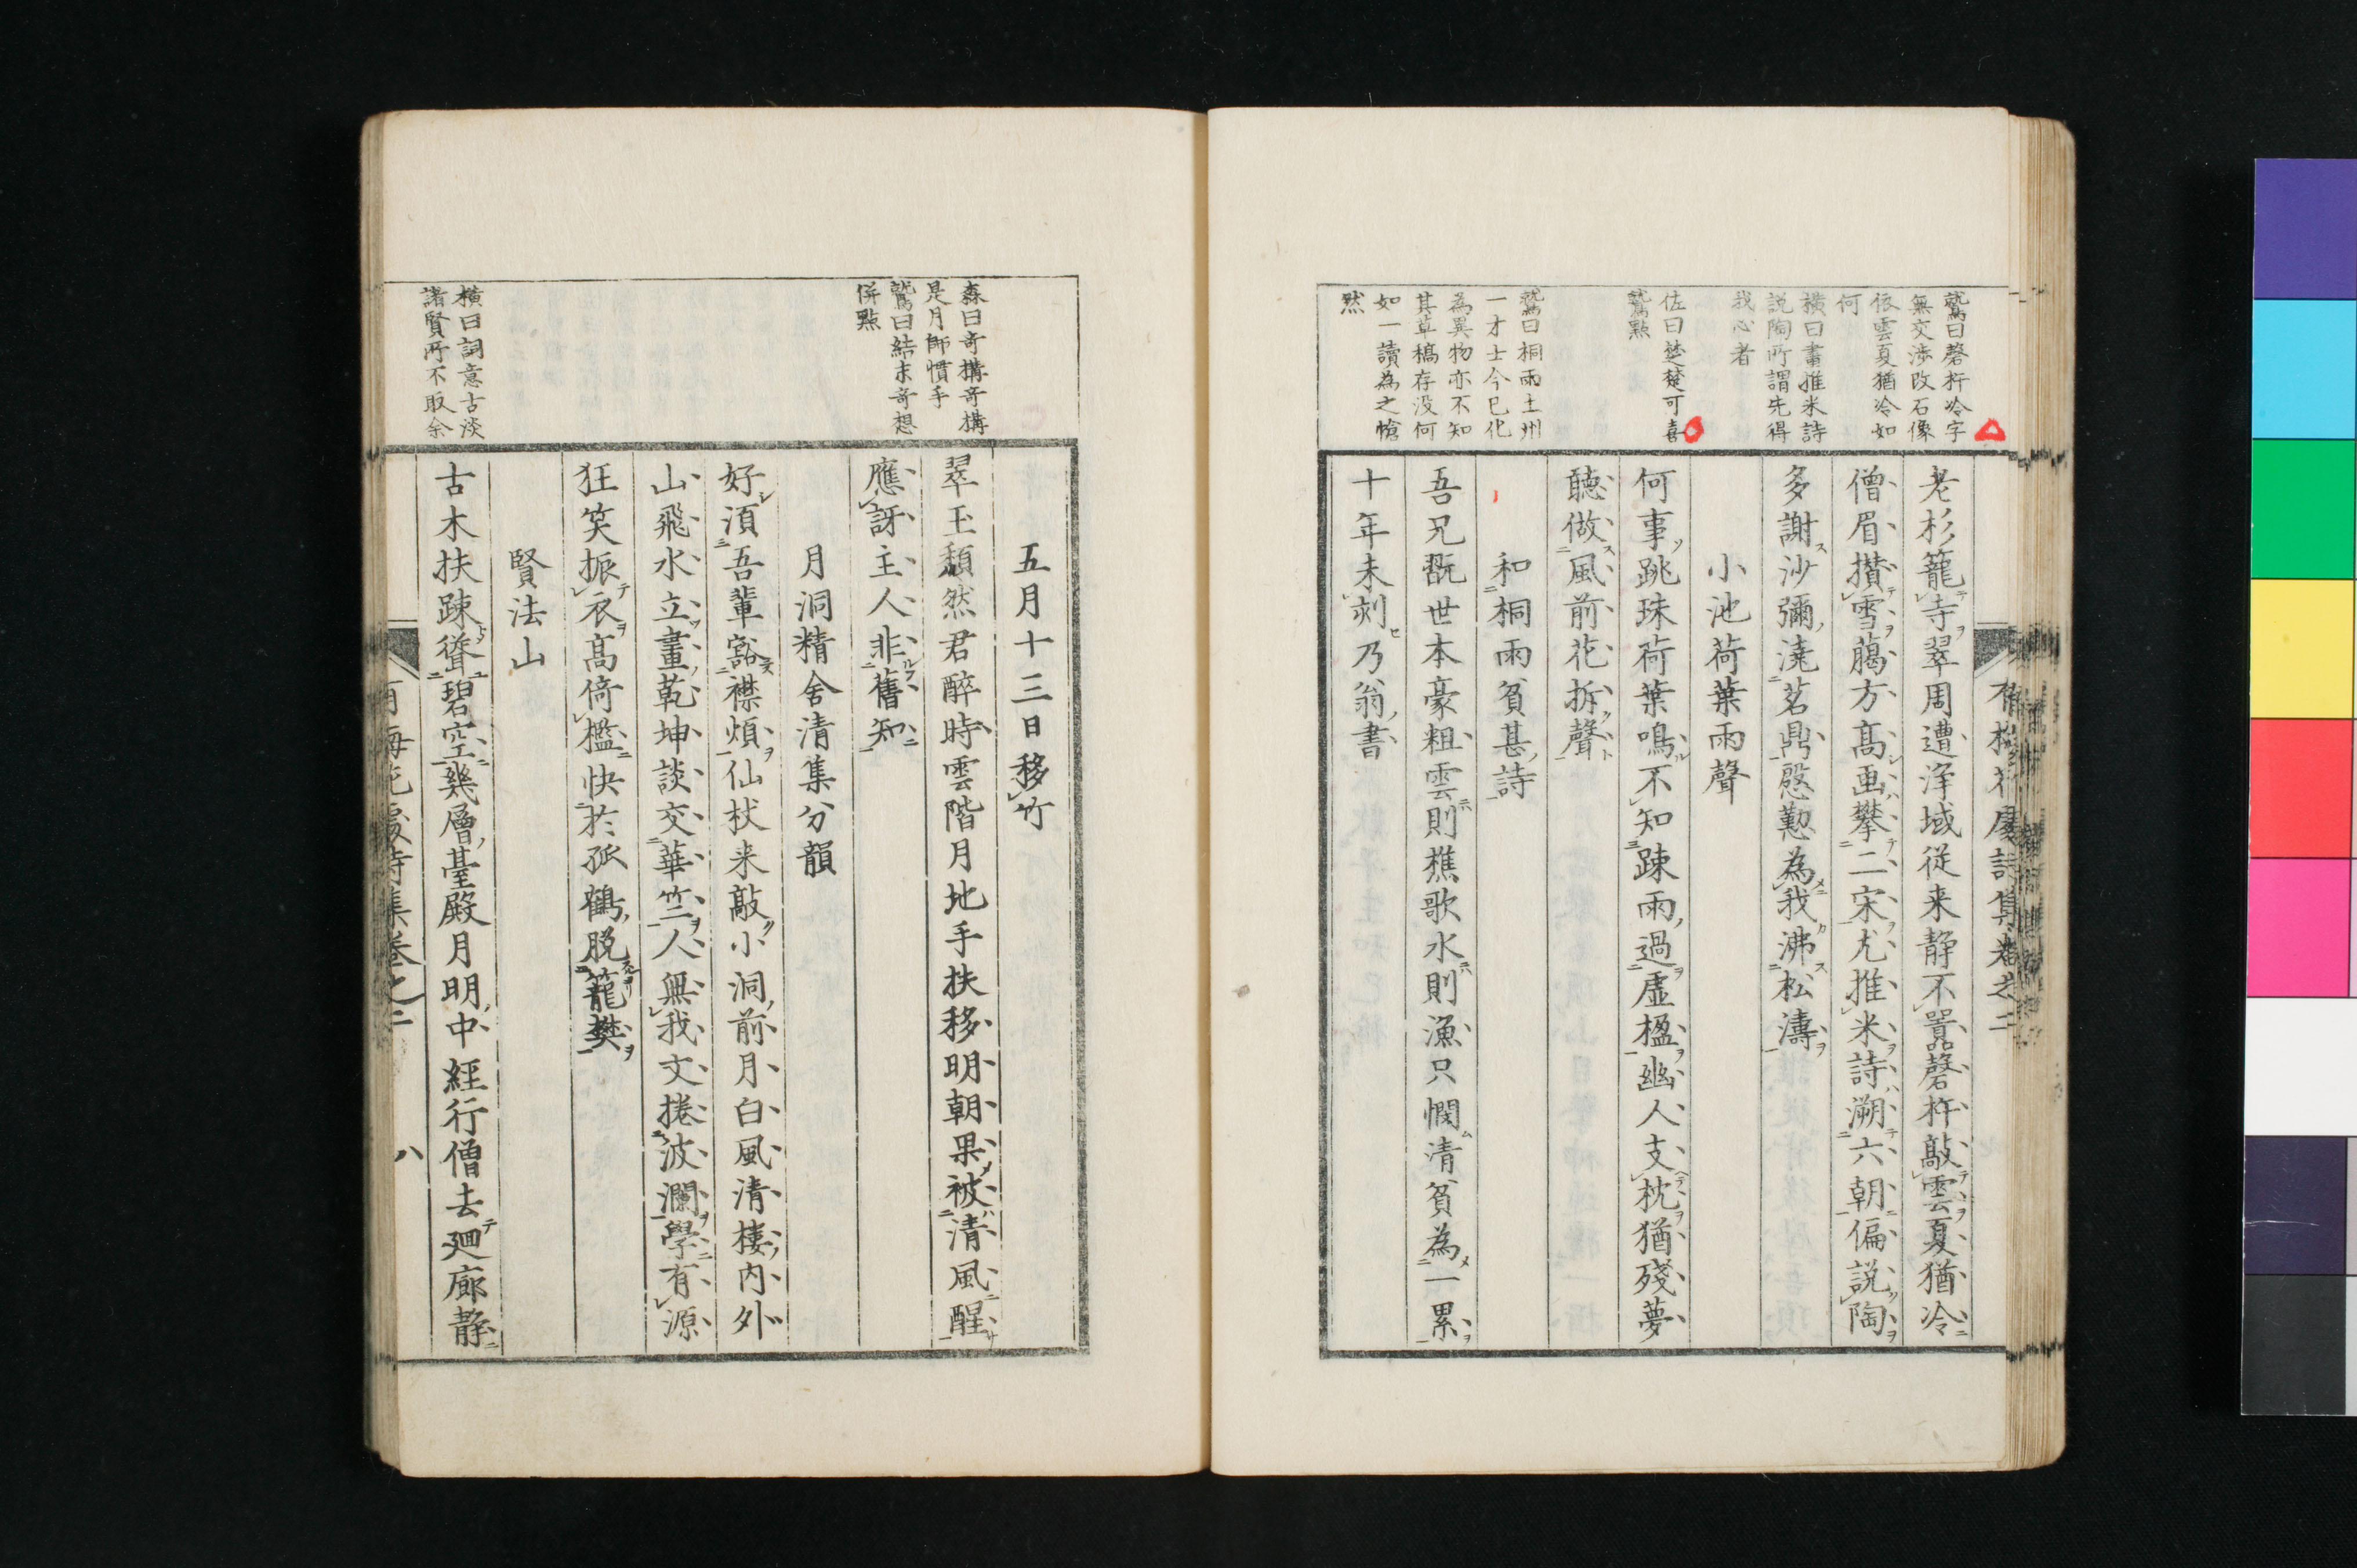 鷲曰磬杵冷字
無交渉改石像
依雲夏猶冷如
何
横曰畵推米詩
説陶所謂先得
我心者
佐曰楚楚可喜
鷲點
鷲曰桐雨土州
一才士今已化
為異物亦不知
其草稿存没何
如一讀為之愴
然
老杉籠寺翠周遭淨域従来静不囂磬杵敲雲夏猶冷
僧眉攅雪﨟方高画攀二宋尤推米詩溯六朝偏説陶
多謝沙彌澆茗鼎慇懃為我沸松濤
小池荷葉雨聲
何事跳珠荷葉鳴不知踈雨過虚楹幽人支枕猶殘夢
聴做風前花拆聲
和桐雨貧甚詩
吾兄既世本豪粗雲則樵歌水則漁只憫清貧為一累
十年未刻乃翁書
森曰奇搆奇搆
是月師慣手
鷲曰結末奇想
併點
横曰詞意古淡
諸賢所不取余
五月十三日移竹
翠玉頽然君醉時雲階月地手扶移明朝果被清風醒
應訝主人非舊知
月洞精舎清集分韻
好湏吾輩豁襟煩仙杖来敲小洞前月白風清棲内外
山飛水立畫乾坤談交華竺人無我文捲波瀾學有源
狂笑振衣高倚檻快於孤鶴脱籠樊
賢法山
古木扶踈聳碧空幾層臺殿月明中経行僧去廻廊静
梅花處詩集巻之二
八